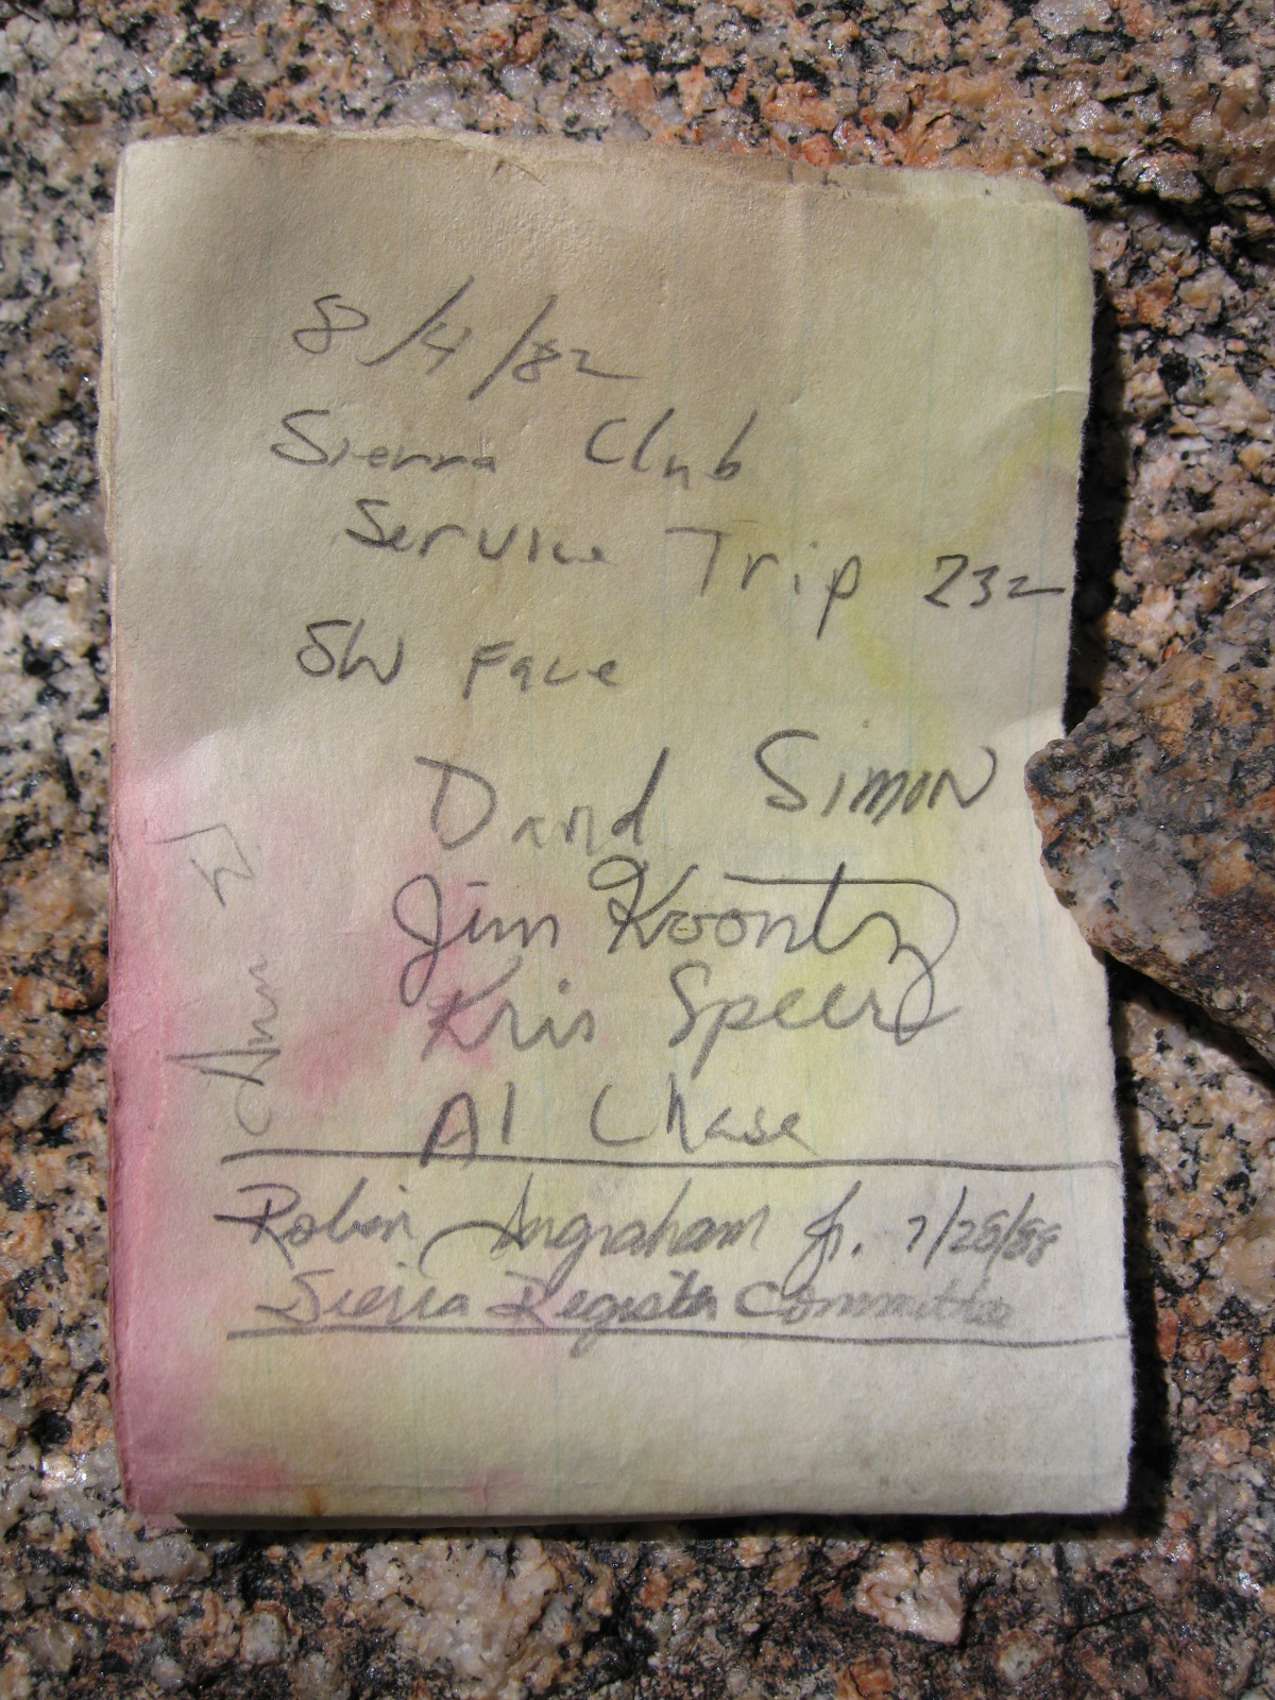 8/4/82
Sierra Club
Service Trip 232
SW Face
David Simon
Jim Koontz
Kris Speer
Al Chase
Ann
Robin Ingraham Jr. 7/28/88
Sierra Register Committee